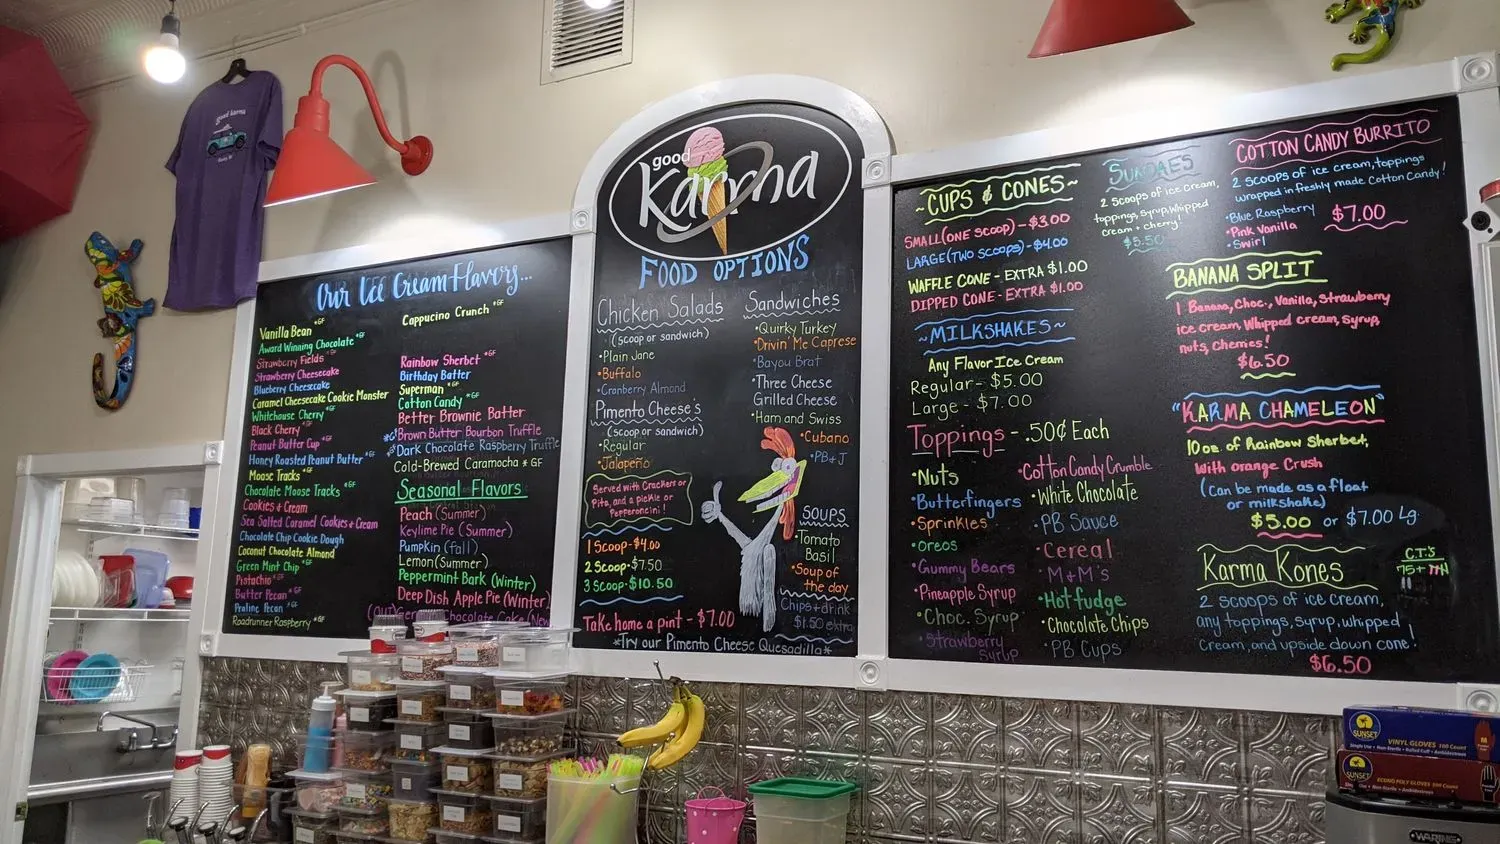 good karma
Our Ice Cream Flavors...
Vanilla Bean *GF
Award Winning Chocolate *GF
Strawberry Fields *GF
Strawberry Cheesecake
Blueberry Cheesecake
Caramel Cheesecake Cookie Monster
Whitehouse Cherry *GF
Black Cherry *GF
Peanut Butter Cup *GF
Honey Roasted Peanut Butter *GF
Moose Tracks *GF
Chocolate Moose Tracks *GF
Cookies + Cream
Sea Salted Caramel Cookies + Cream
Chocolate Chip Cookie Dough
Coconut Chocolate Almond
Green Mint Chip *GF
Pistachio *GF
Butter Pecan *GF
Praline Pecan *GF
Roadrunner Raspberry *GF
Cappucino Crunch *GF
Rainbow Sherbet *GF
Birthday Batter
Superman *GF
Cotton Candy *GF
Better Brownie Batter
*GF Brown Butter Bourbon Truffle
*GF Dark Chocolate Raspberry Truffle
Cold-Brewed Caramocha *GF
Seasonal Flavors
Peach (Summer)
Keylime Pie (Summer)
Pumpkin (fall)
Lemon (Summer)
Peppermint Bark (Winter)
Deep Dish Apple Pie (Winter)
(OUT) German Chocolate Cake (New
good
Karma
FOOD OPTIONS
Chicken Salads
(scoop or sandwich)
•Plain Jane
•Buffalo
•Cranberry Almond
Pimento Cheese's
(scoop or sandwich)
•Regular
•Jalapeño
Served with Crackers or
Pita, and a pickle or
Pepperoncini!
1 Scoop-$4.00
2 Scoop-$7.50
3 Scoop-$10.50
Take home a pint - $7.00
*Try our Pimento Cheese Quesadilla*
Sandwiches
•Quirky Turkey
•Drivin' Me Caprese
•Bayou Brat
•Three Cheese
Grilled Cheese
•Ham and Swiss
•Cubano
•PB+J
SOUPS
•Tomato
Basil
•Soup of
the day
Chips + drink
$1.50 extra
~CUPS & CONES~
SMALL (ONE SCOOP) - $3.00
LARGE (TWO SCOOPS) - $4.00
WAFFLE CONE - EXTRA $1.00
DIPPED CONE - EXTRA $1.00
~MILKSHAKES~
Any Flavor Ice Cream
Regular - $5.00
Large - $7.00
Toppings - .50¢ Each
•Nuts
•Butterfingers
•Sprinkles
•Oreos
•Gummy Bears
•Pineapple Syrup
•Choc. Syrup
•Strawberry
Syrup
•Cotton Candy Crumble
•White Chocolate
•PB Sauce
•Cereal
•M+M's
•Hot fudge
•Chocolate Chips
•PB Cups
SUNDAES
2 scoops of ice cream,
toppings, syrup, whipped
cream + cherry!
$5.50
COTTON CANDY BURRITO
2 scoops of ice cream, toppings
wrapped in freshly made Cotton Candy!
•Blue Raspberry
•Pink Vanilla
•Swirl
$7.00
BANANA SPLIT
1 Banana, Choc., Vanilla, Strawberry
ice cream, Whipped cream, Syrup,
nuts, Cherries!
$6.50
"KARMA CHAMELEON"
10oz of Rainbow Sherbet,
With Orange Crush
(Can be made as a float
or milkshake)
$5.00 or $7.00 Lg.
Karma Kones
2 scoops of ice cream,
any toppings, syrup, whipped
Cream, and upside down cone!
$6.50
C.T.'S
75+
SUNSET
VINYL GLOVES 100 Count
SUNSET
ECONO POLY GLOVES
WARING